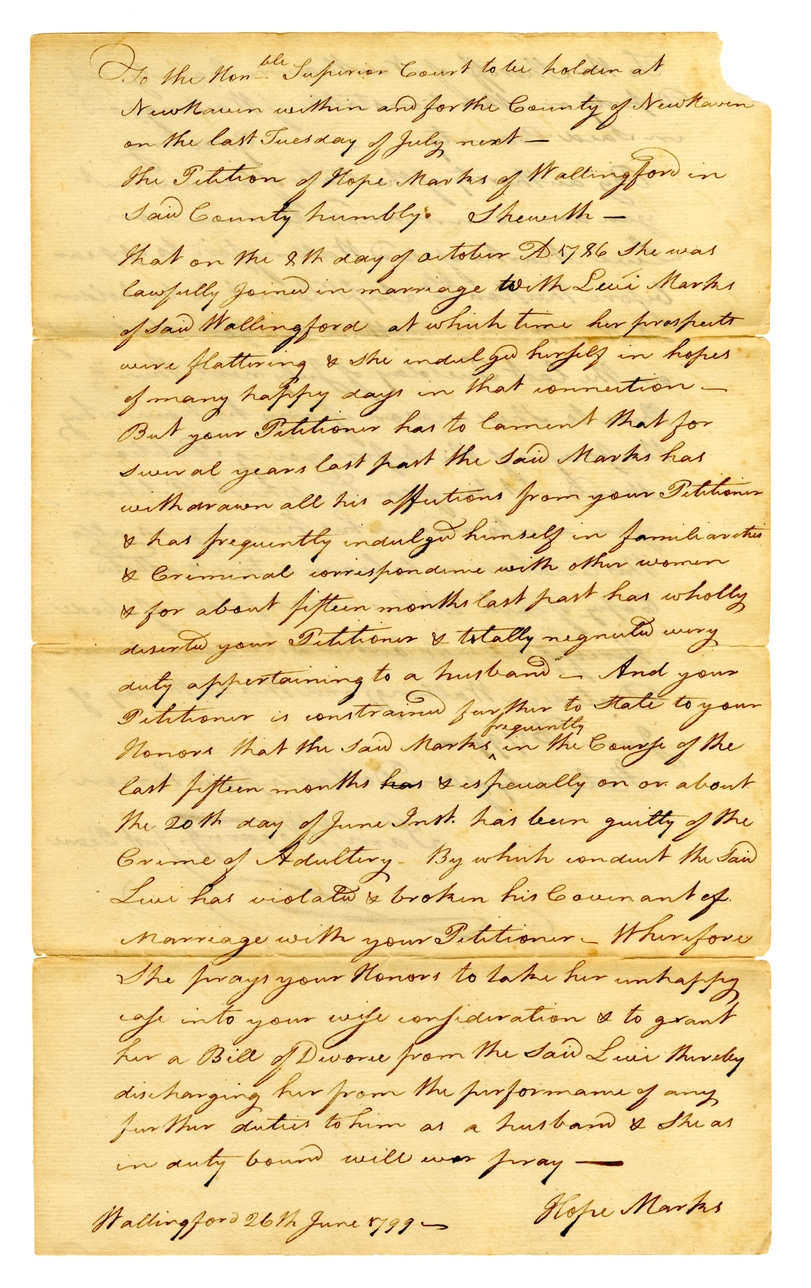 To the Honble Superior Court to be holden at
New Haven within and for the County of New Haven
on the last Tuesday of July next —
The Petition of Hope Marks of Wallingford in
Said County humbly Sheweth —
that on the 8th day of october AD 1786 She was
lawfully joined in marriage with Levi Marks
of Said Wallingford at which time her prospects
were flattering & she indulged herself in hopes
of many happy days in that connection —
But your Petitioner has to lament that for
several years last past the Said Marks has
withdrawn all his affections from your Petitioner
& has frequently indulged himself in familiarities
& Criminal correspondence with other women
& for about fifteen months last past has wholly
deserted your Petitioner & totally neglected every
duty appertaining to a husband — And your
Petitioner is constrained further to State to your
Honors that the Said Marks ^frequently in the Course of the
last fifteen months has & especially on or about
the 20th day of June Inst. has been guilty of the
Crime of Adultery — By which conduct the Said
Levi has violated & broken his Covenant of
Marriage with your Petitioner — Wherefore
She prays your Honors to take her unhappy
case into your wise consideration & to grant
her a Bill of Divorce from the Said Levi thereby
discharging her from the performance of any
further duties to him as a husband & She as
in duty bound will ever pray —
Wallingford 26th June 1799 — Hope Marks